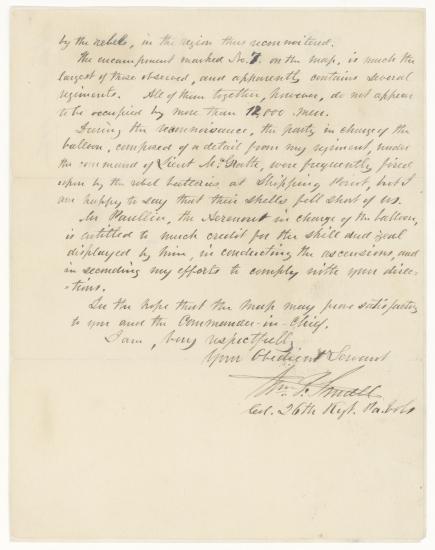 by the rebels, in the region thus reconnoitered.
The encampment marked No. 7. on the map, is much the
largest of those observed, and apparently contains several
regiments. All of them together, however, do not appear
to be occupied by more than 12,000 men.
During the reconnoisance, the party in charge of the
balloon, composed of a detail from my regiment, under
the command of Lieut Mc Grath, were frequently fired
upon by the rebel batteries at Shipping Point, but I
am happy to say that their shells fell short of us.
Mr Paullin, the Aeronaut in charge of the balloon,
is entitled to much credit for the skill and zeal
displayed by him, in conducting the ascensions, and
in seconding my efforts to comply with your direc-
-tions.
In the hope that the map may prove satisfactory
to you and the Commander-in-Chief,
I am, very respectfully
Your Obedient Servant
Wm F. Small
Col. 26th Regt. Pa. Vols